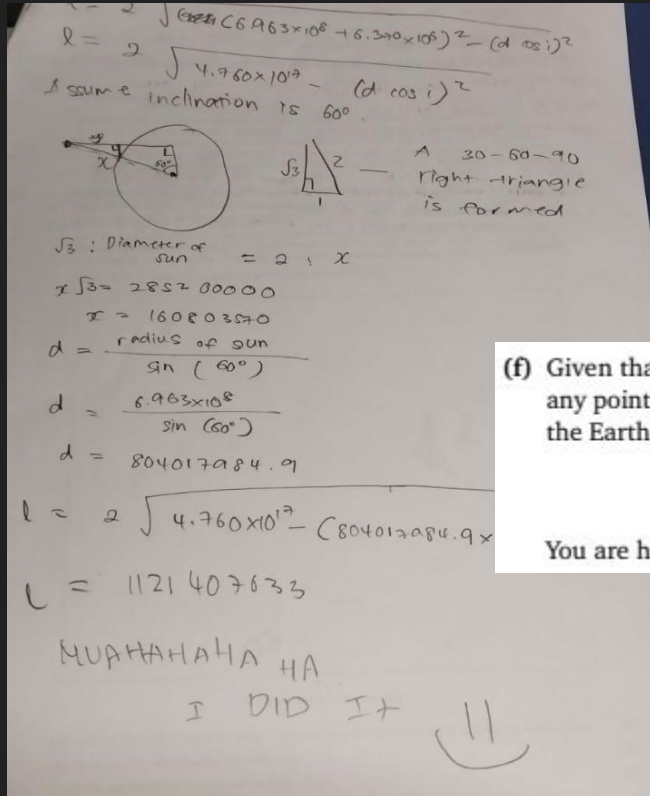 l = 2 √(6.963×10⁸ + 6.370×10⁶)² − (d cos i)²
l = 2 √4.760×10¹⁷ − (d cos i)²
Assume inclination is 60°
y
x
60°
√3
2
1
— A 30-60-90
right triangle
is formed
√3 : Diameter of sun = 2 : x
x√3 = 285200000
x = 160803570
d = radius of sun / sin (60°)
d = 6.963×10⁸ / sin (60°)
d = 804017984.9
l = 2 √4.760×10¹⁷ − (804017984.9 ×
l = 1121407633
MUAHAHAHA HA
I DID It
(f) Given tha
any point
the Earth
You are h